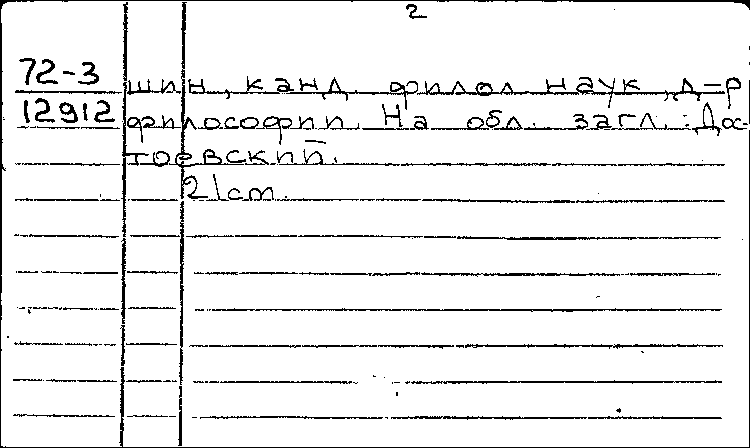 2
72-3 шин, канд. филол. наук, д-р
12912 философии. На обл. загл.: Дос-
тоевский.
21 cm.